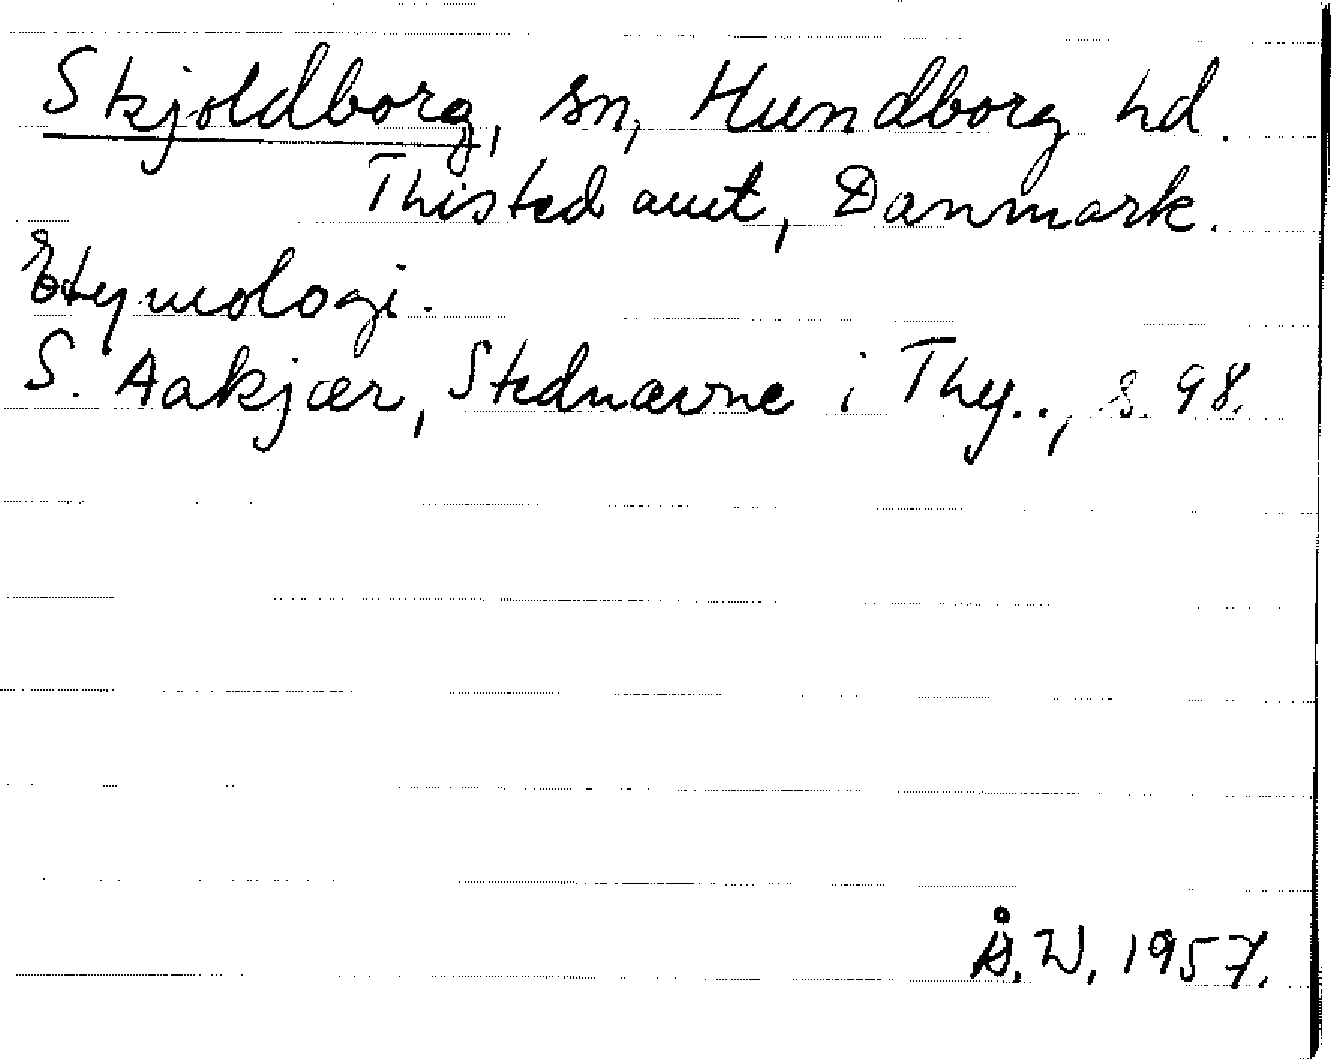 Skjoldborg, sn, Hundborg hd.
Thisted amt, Danmark.
Etymologi.
S. Aakjær, Stednavne i Thy.., s. 98.
Å.W. 1957.